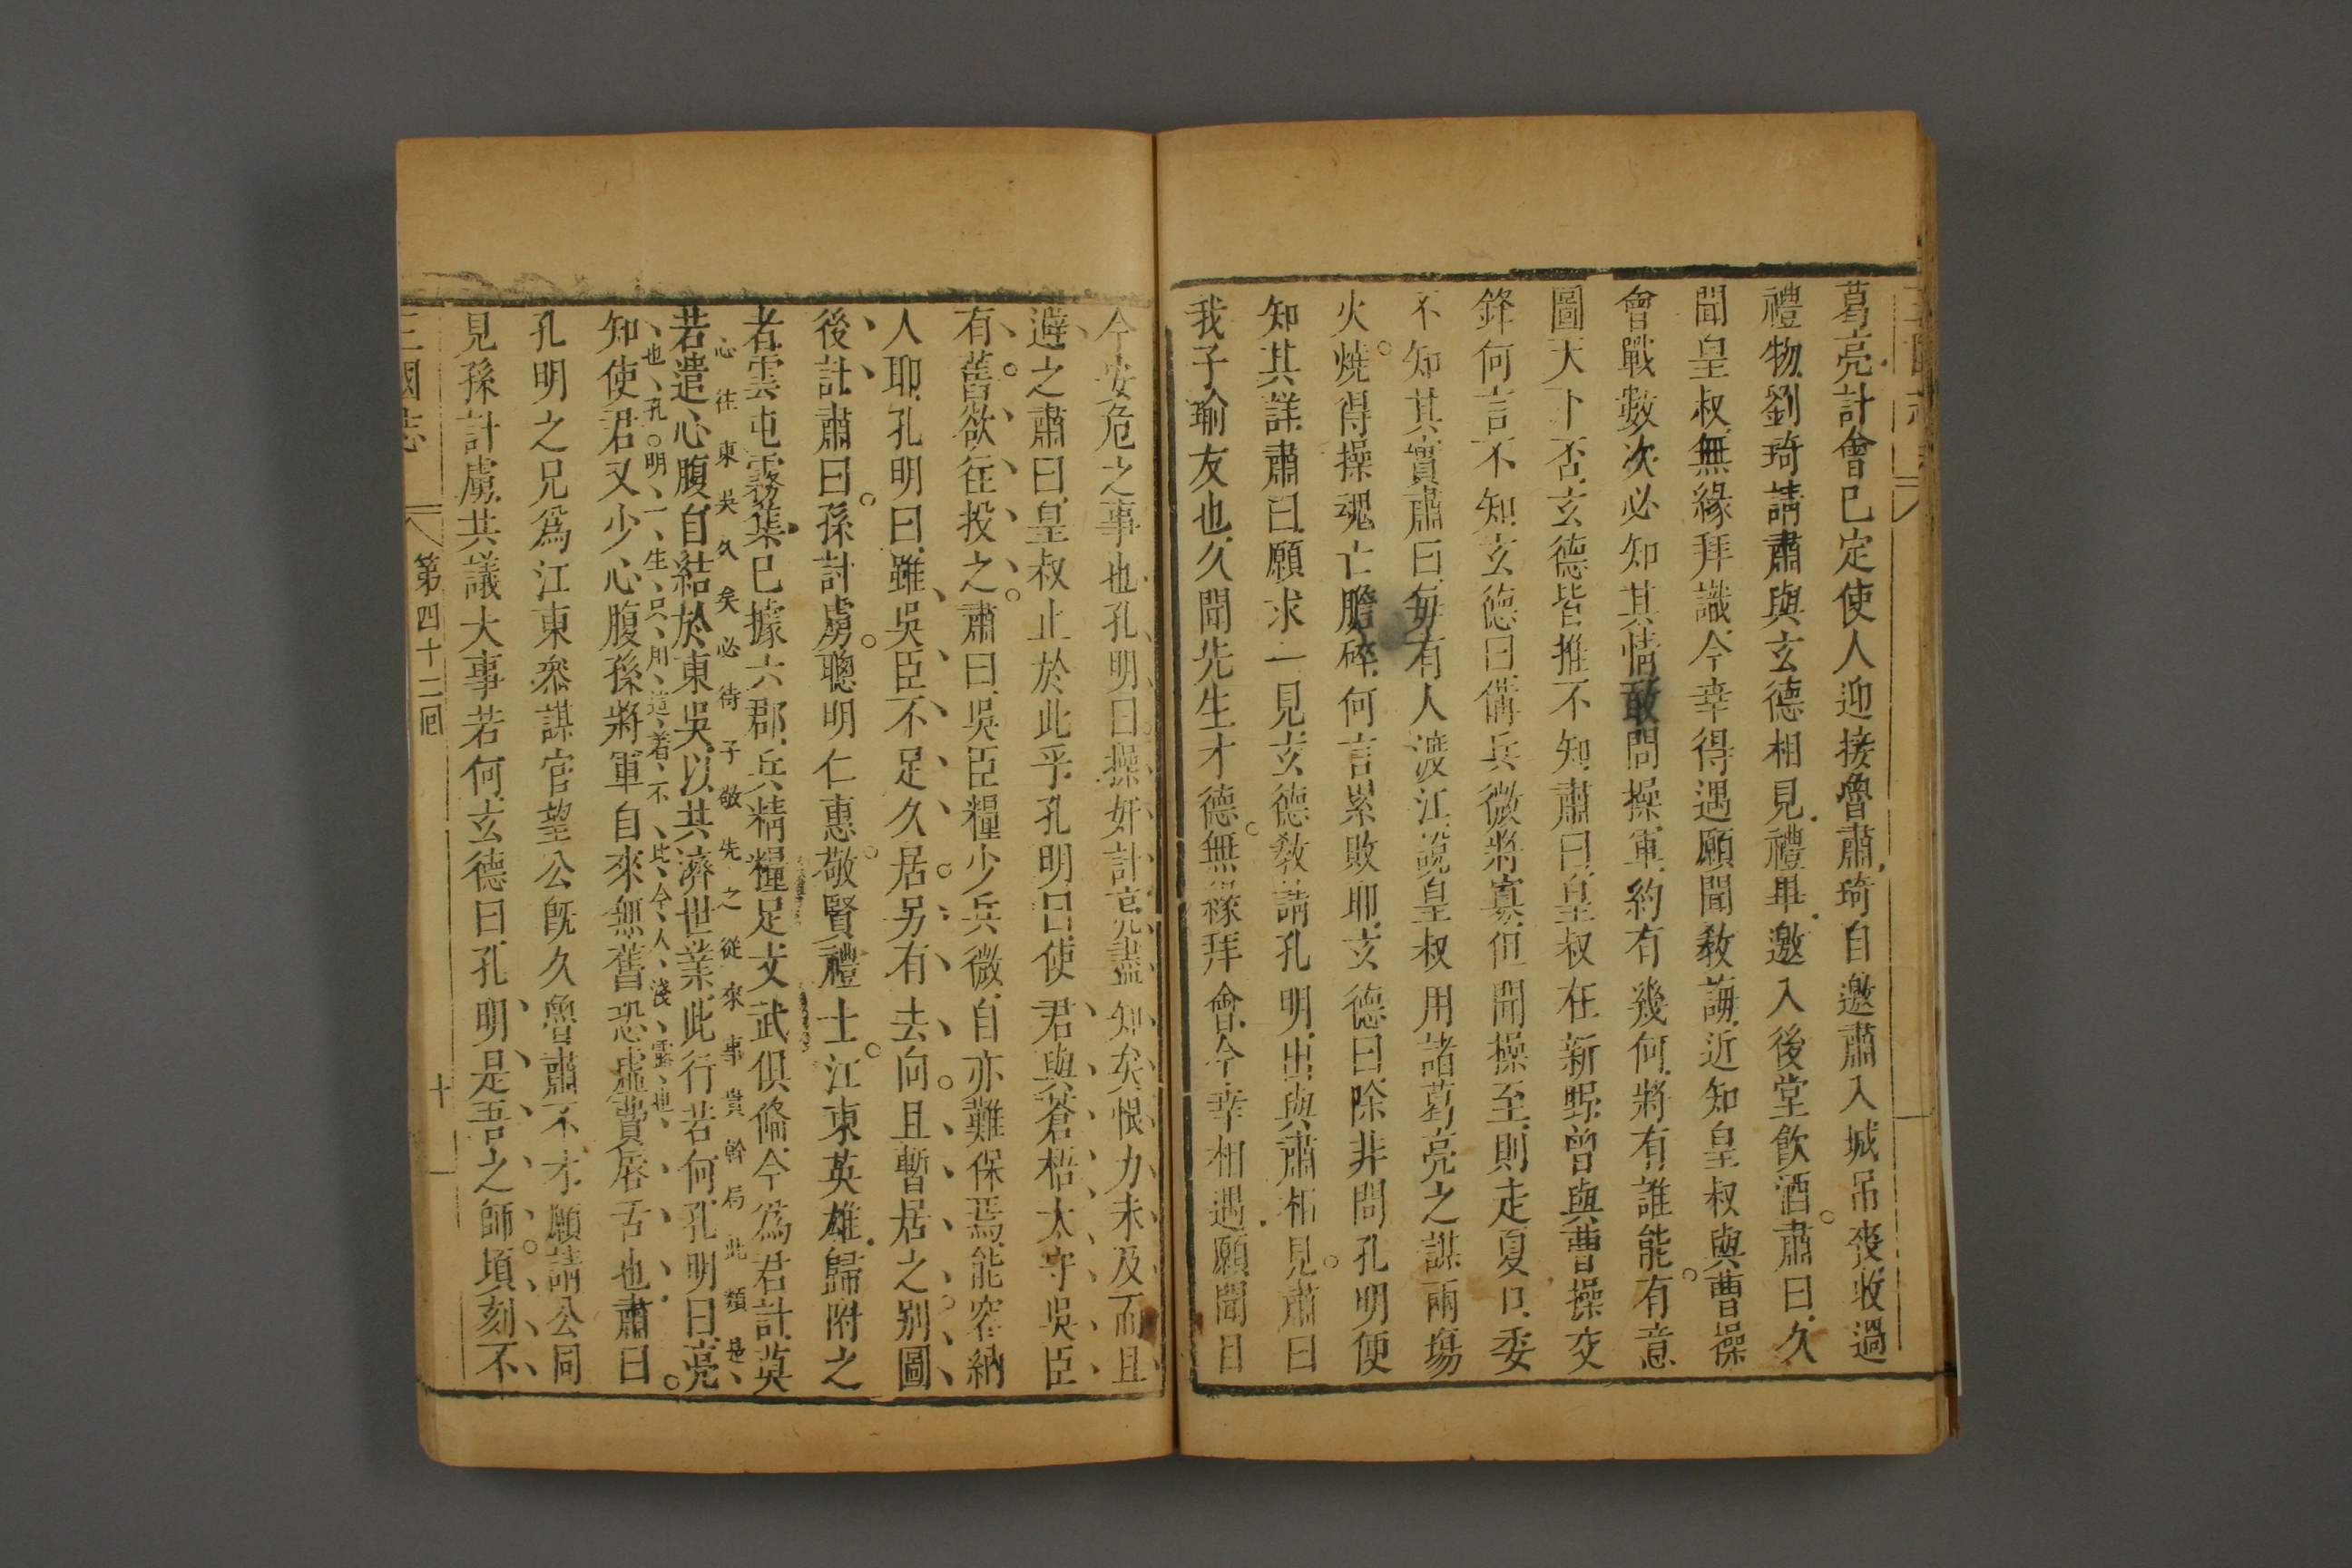 葛亮計會已定使人迎接魯肅琦自邀肅入城吊喪收過
禮物劉琦請肅與玄德相見禮畢邀入後堂飲酒肅曰久
聞皇叔無緣拜識今幸得遇願聞教誨近知皇叔與曹操
會戰數次必知其情敢問操軍約有幾何將有誰能有意
圖天下否玄德皆推不知肅曰皇叔在新野曾與曹操交
鋒何言不知玄德曰備兵微將寡但聞操至則走夏口委
不知其實肅曰每有人渡江說皇叔用諸葛亮之謀兩塲
火燒得操魂亡膽碎何言累敗耶玄德曰除非問孔明便
知其詳肅曰願求一見玄德教請孔明出與肅相見肅曰
我子瑜友也久聞先生才德無緣拜會今幸相遇願聞目
今安危之事也孔明曰操奸計亮盡知矣恨力未及而且
避之肅曰皇叔止於此乎孔明曰使君與蒼梧太守吳臣
有舊欲往投之肅曰吳臣糧少兵微自亦難保焉能容納
人耶孔明曰雖吳臣不足久居另有去向且暫居之别圖
後計肅曰孫討虜聰明仁惠敬賢禮士江東英雄歸附之
者雲屯霧集已據六郡兵精糧足文武俱俻今爲君計莫
心往東吳久矣必待子敬先之從來事貴幹局此類是
若遣心腹自結於東吳以共濟世業此行若何孔明曰亮
也孔明一生只用這着不比今人淺露也
知使君又少心腹孫將軍自來無舊恐虛費唇舌也肅曰
孔明之兄爲江東叅謀官望公旣久魯肅不才願請公同
見孫討虜共議大事若何玄德曰孔明是吾之師頃刻不
三國志
第四十二囘
十